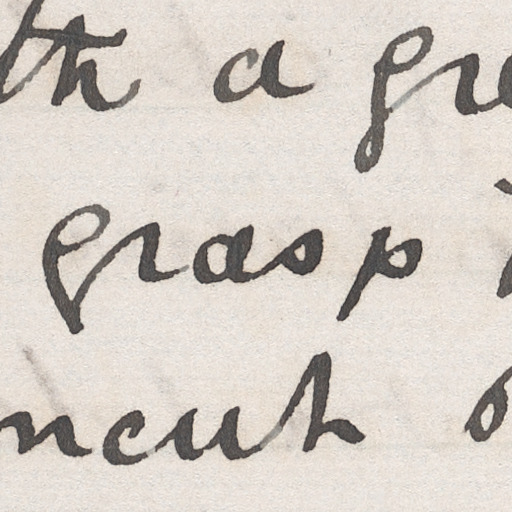 th a gre
grasp
ncut o